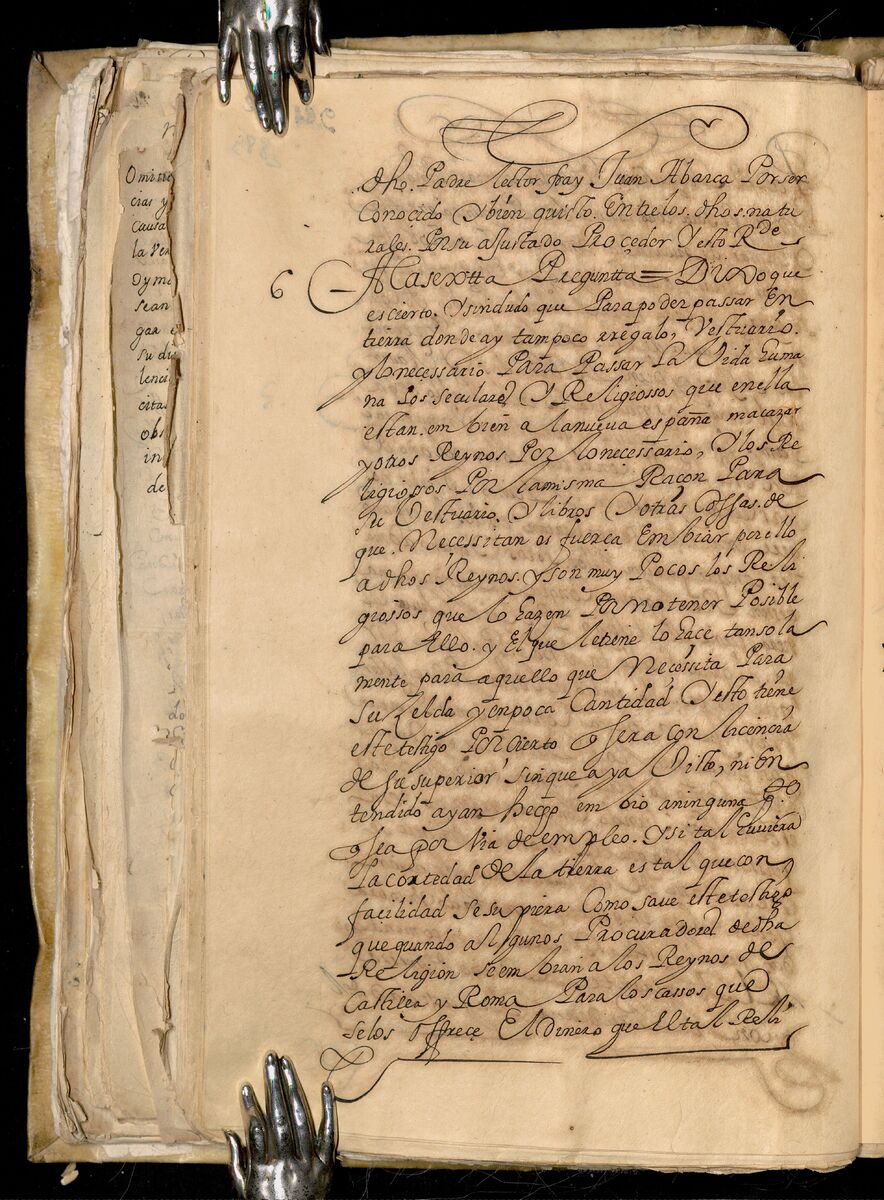 dho. Padre lector fray Juan Abarca Porser
Conocido Ybien quisto. Entrelos. dhos. natu
rales. Ensu ajustado Proceder Yesto Rde
6 Alasextta Preguntta = Dixoque
escierto. Ysindudo que Parapoder passar En
tierra donde ay tampoco rregalo, Vestuario.
ylonecessario Para Passar La Vida huma
na Los seculares Y Religiossos que enella
estan. embien alanueva españa macazar
yotros Reynos Por lonecessario, Ylos Re
ligiossos Por lamisma Raçon Para
Vestuario. Ylibros Yotras Cossas. de
que. Necessitan es fuerça Embiar, porello
adhos Reynos. yson muy Pocos los Reli
giossos que lo hazen Por no tener Posible
para Ello. y El que letiene lo haçe tansola
mente para aquello que Necessita Para
su Zelda yenpoca Cantidad Yesto tiene
estetestigo Por cierto sera con licencia
de su superior sinque aya Visto, ni En
tendido ayan hecho embio aninguna
sea por Via de empleo. Ysi tal huviera
La cortedad de la tierra es tal que con
facilidad se supiera Como save estetestigo
que quando algunos Procuradores dedha
Religion seembian alos Reynos de
Castilla y Roma Para loscassos que
selos offreçe El dinero que El tal Reli
Omi
cias y
causa
la
sean
su
cita
obs
in
de
do